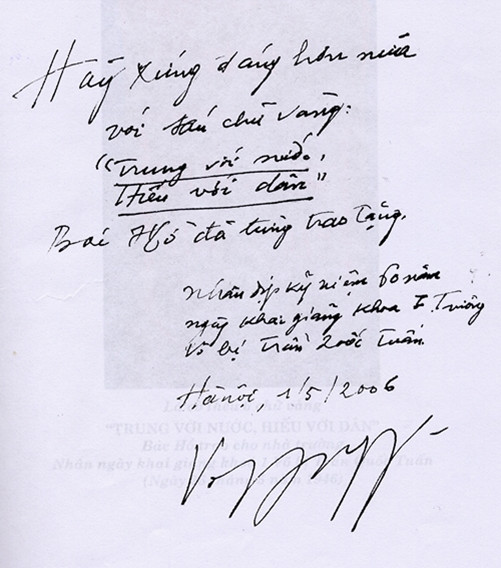 Hãy xứng đáng hơn nữa
với sáu chữ vàng:
"Trung với nước,
Hiếu với dân"
Bác Hồ đã từng trao tặng.
Nhân dịp kỷ niệm 60 năm
ngày khai giảng khoá I Trường
Võ bị Trần Quốc Tuấn
Hà nội, 1/5/2006
"TRUNG VỚI NƯỚC, HIẾU VỚI DÂN"
Bác Hồ cho nhà trường
Nhân ngày khai giảng Tuấn